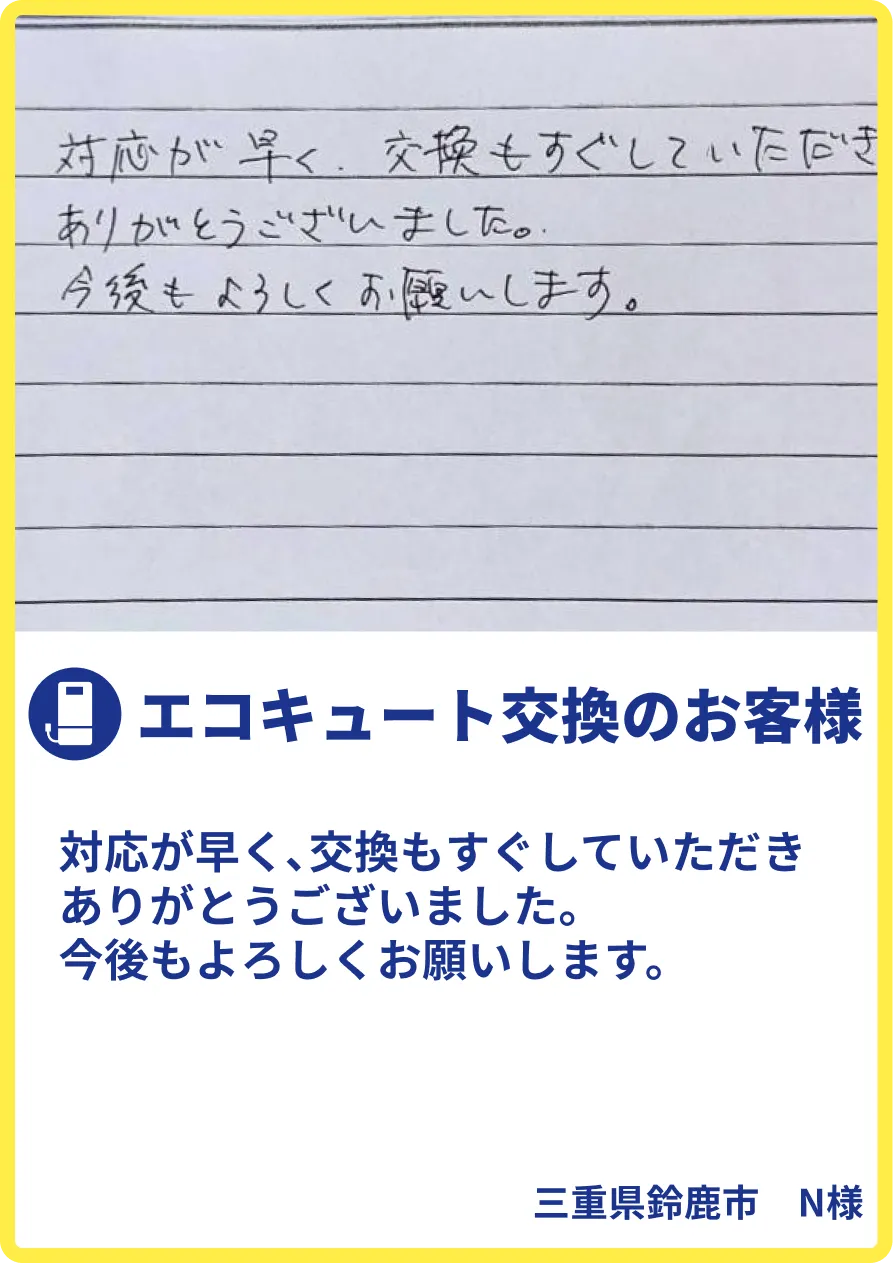 対応が早く、交換もすぐしていただき
ありがとうございました。
今後もよろしくお願いします。
エコキュート交換のお客様
対応が早く、交換もすぐしていただき
ありがとうございました。
今後もよろしくお願いします。
三重県鈴鹿市　N様